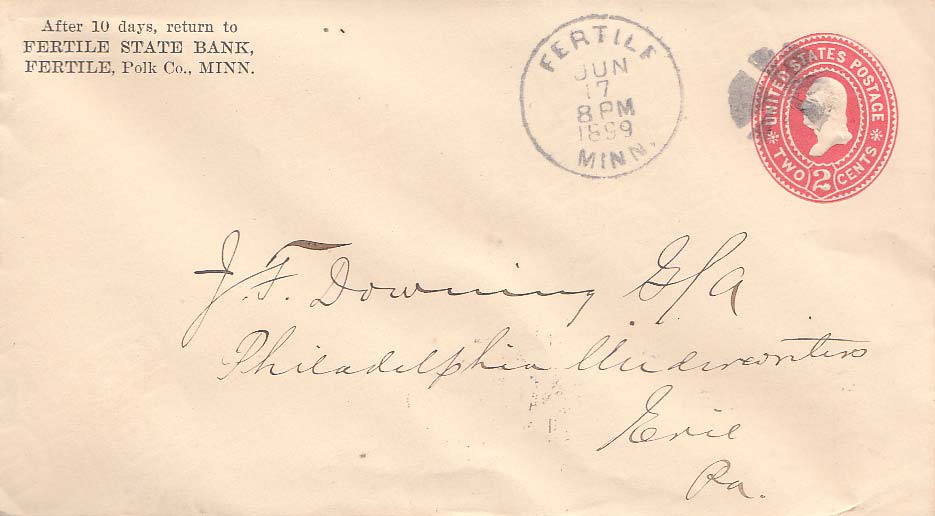 After 10 days, return to
FERTILE STATE BANK,
FERTILE, Polk Co., MINN.
FERTILE
JUN
17
8 PM
1899
MINN.
UNITED STATES POSTAGE
TWO 2 CENTS
J. F. Downing G/A
Philadelphia Underwriters
Erie
Pa.